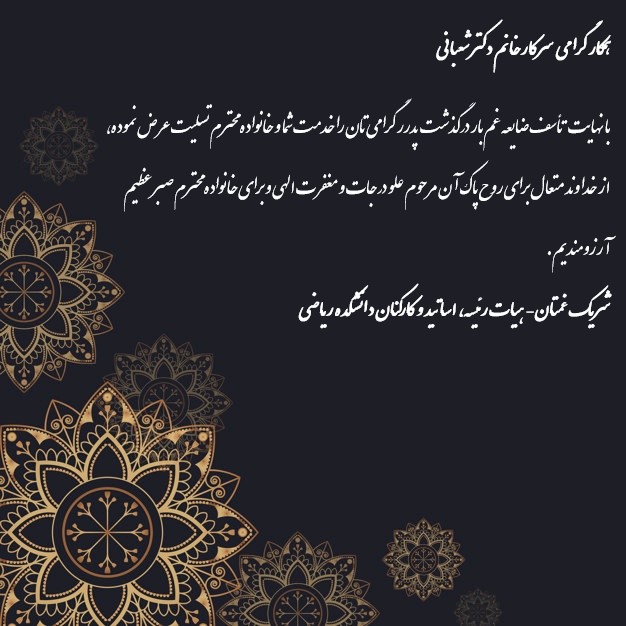 همکار گرامی سرکار خانم دکتر شعبانی
با نهایت تأسف ضایعه غم بار درگذشت پدرر گرامی تان را خدمت شما و خانواده محترم تسلیت عرض نموده،
از خداوند متعال برای روح پاک آن مرحوم علو درجات و مغفرت الهی و برای خانواده محترم صبر عظیم
آرزومندیم.
شریک غمتان- هیات رئیسه، اساتید و کارکنان دانشکده ریاضی